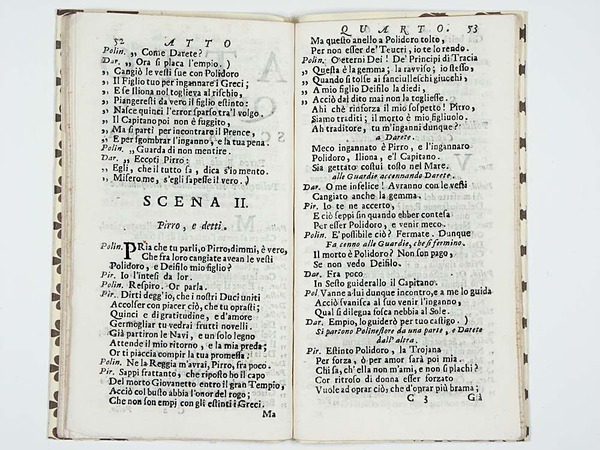 52 ATTO
Polin. „ Come Darete?
Dar. „ Ora si placa l'empio. )
„ Cangiò le vesti sue con Polidoro
„ Il Figlio tuo per ingannare i Greci;
„ E se Iliona nol toglieva al rischio,
„ Piangeresti da vero il figlio estinto:
„ Nasce quinci l'error sparso tra'l volgo.
„ Il Capitano poi non è fuggito,
„ Ma si partì per incontrare il Prence,
„ E per sgombrar l'inganno, e la tua pena.
Polin. „ Guarda di non mentire.
Dar. „ Eccoti Pirro:
„ Egli, che il tutto sa, dica s'io mento.
„ Misero me, s'egli sapesse il vero. )
SCENA II.
Pirro, e detti.
Polin. PRia che tu parli, o Pirro, dimmi, è vero,
Che fra loro cangiate avean le vesti
Polidoro, e Deifilo mio figlio?
Pir. Io l'intesi da lor.
Polin. Respiro. Or parla.
Pir. Dirti degg'io, che i nostri Duci uniti
Accolser con piacer ciò, che tu oprasti;
Quinci e di gratitudine, e d'amore
Germogliar tu vedrai frutti novelli.
Già partiron le Navi, e un solo legno
Attende il mio ritorno, e la mia preda;
Or ti piaccia compir la tua promessa.
Polin. Ne la Reggia m'avrai, Pirro, fra poco.
Pir. Sappi frattanto, che riposto ho il capo
Del morto Giovanetto entro il gran Tempio,
Acciò col busto abbia l'onor del rogo;
Che non son empj con gli estinti i Greci.
Ma
QUARTO. 53
Ma questo anello a Polidoro tolto,
Per non esser de' Teucri, io te lo rendo.
Polin. O eterni Dei! De' Principi di Tracia
„ Questa è la gemma; la ravviso; io stesso,
„ Quando si tolse ai fanciulleschi giuochi,
„ A mio figlio Deifilo la diedi,
„ Acciò dal dito mai non la togliesse.
Ahi chè rinforza il mio sospetto! Pirro,
Siamo traditi; il morto è mio figliuolo.
Ah traditore, tu m'inganni dunque?
a Darete.
Meco ingannato è Pirro, e l'ingannaro
Polidoro, Iliona, e'l Capitano.
Sia gettato costui tosto nel Mare.
alle Guardie accennando Darete.
Dar. O me infelice! Avranno con le vesti
Cangiato anche la gemma.
Pir. Io te ne accerto,
E ciò seppi sin quando ebber contesa
Per esser Polidoro, e venir meco.
Polin. E' possibile ciò? Fermate. Dunque
Fa cenno alle Guardie, che si fermino.
Il morto è Polidoro? Non son pago,
Se non vedo Deifilo.
Dar. Fra poco
In Sesto guiderallo il Capitano.
Pol. Vanne a lui dunque incontro, e a me lo guida
Acciò svanisca al suo venir l'inganno,
Qual si dilegua fosca nebbia al Sole.
Dar. Empio, lo guiderò per tuo castigo. )
Si partono Polinestore da una parte, e Darete
dall'altra.
Pir. Estinto Polidoro, la Trojana
Per forza, ò per amor sarà poi mia.
Chi sa, ch'ella non m'ami, e non si plachi?
Cor ritroso di donna esser forzato
Vuole ad oprar ciò, che d'oprar più brama;
C 3 Già